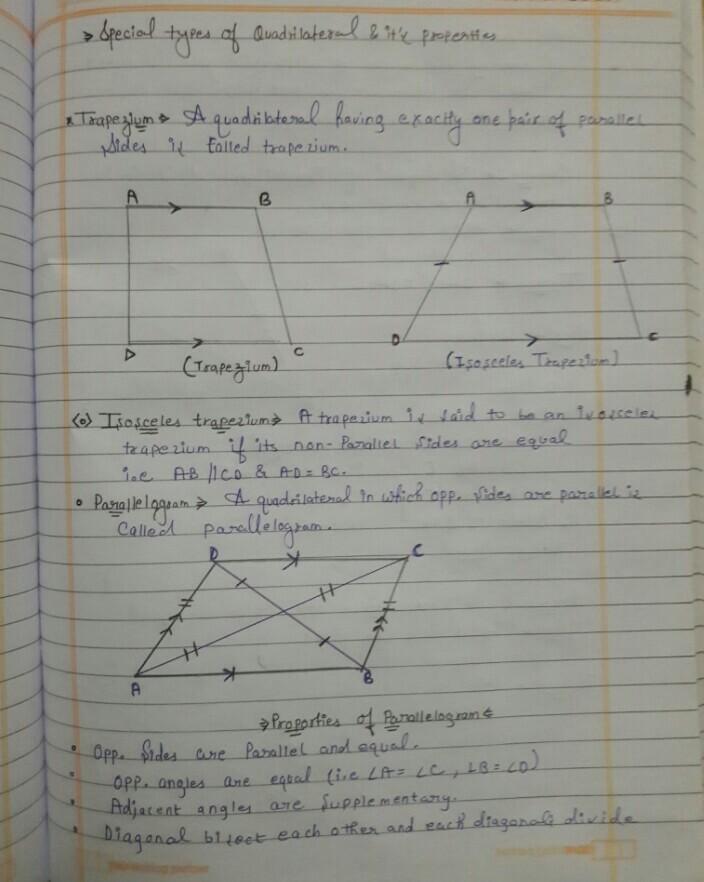 > Special types of Quadrilateral & it's properties
Trapezium > A quadrilateral having exactly one pair of parallel
sides is called trapezium.
A B
D C
(Trapezium)
A B
D C
(Isosceles Trapezium)
(o) Isosceles trapezium > A trapezium is said to be an isosceles
trapezium if its non-Parallel sides are equal
i.e AB || CD & AD = BC.
• Parallelogram > A quadrilateral in which opp. sides are parallel is
Called parallelogram.
D C
A B
> Properties of Parallelogram <
• Opp. Sides are Parallel and equal.
• Opp. angles are equal (i.e ∠A = ∠C, ∠B = ∠D)
• Adjacent angles are Supplementary.
• Diagonal bisect each other and each diagonals divide